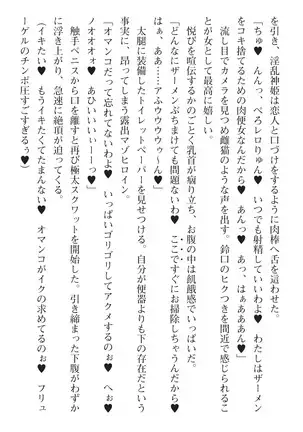 を引き、淫乱神姫は恋人と口づけをするように肉棒へ舌を這わせた。
「ちゅ♥　んんっ、ぺろレロりゅん♥　いつでも射精していいわよ♥　わたしはザーメン
をコキ捨てるための肉便女なんだから♥　あんっ♥　あっ、はぁああああん♥」
流し目でカメラを見つめ雌猫のような声を出す。鈴口のヒクつきを間近で感じられるこ
とが女として最高に嬉しい。
悦びを喧伝するかのごとく乳首が痼り立ち、お腹の中は飢餓感でいっぱいだ。
「どんなにザーメンぶちまけても問題ないわ♥　ここですぐにお掃除しちゃうんだから♥
はぁ、ああ……アふウウウウゥ～ん♥」
太腿に装備したトイレットペーパーを見せつける。自分が便器よりも下の存在だという
事実に、昂ってしまう露出マゾヒロイン。
「オマンコだって忘れてないわよ♥　いっぱいゴリゴリしてアクメするのぉ♥　へぉ♥
ノォオオォ♥　あひいいいぃーーっ♥」
触手ペニスから口を離すと再び極太スクワットを開始した。引き締まった下腹がわずか
に浮き上がり、急速に絶頂が迫ってくる。
（イキたい♥　もうイキたくてたまんない♥　オマンコがイクの求めてるのぉ♥　フリュ
ーゲルのチンポ圧すごすぎるぅ♥